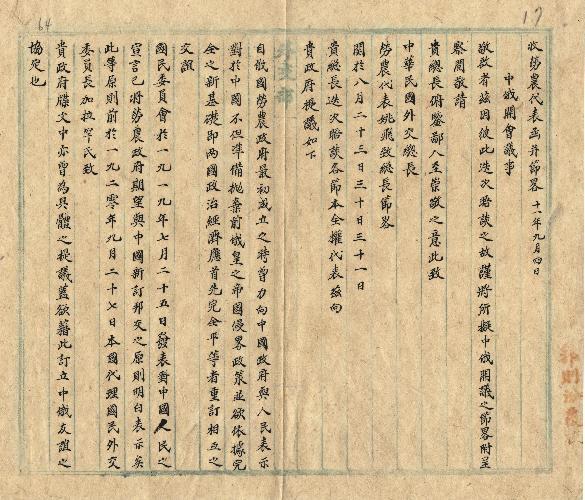 17
64
收勞農代表函并節畧 十一年九月四日
中俄開會議事
敬啟者茲因彼此迭次晤談之故謹將所擬中俄開議之節畧附呈
察閱敬請
貴總長俯鑒鄙人至崇敬之意此致
中華民國外交總長
勞農代表姚飛致總長節畧
關於八月二十三日三十日三十一日
貴總長迭次晤談各節本全權代表茲向
貴政府提議如下
自俄國勞農政府最初成立之時曾力向中國政府與人民表示
對於中國不但準備拋棄前俄皇之帝國侵畧政策並欲依據完
全之新基礎即兩國政治經濟應首先完全平等者重訂相互之
交誼
國民委員會於一九一九年七月二十五日發表對中國人民之
宣言已將勞農政府期望與中國新訂邦交之原則明白表示矣
此等原則前於一九二零年九月二十七日本國代理國民外交
委員長加拉罕氏致
貴政府牒文中亦曾為具體之提議蓋欲藉此訂立中俄友誼之
協定也
外交部